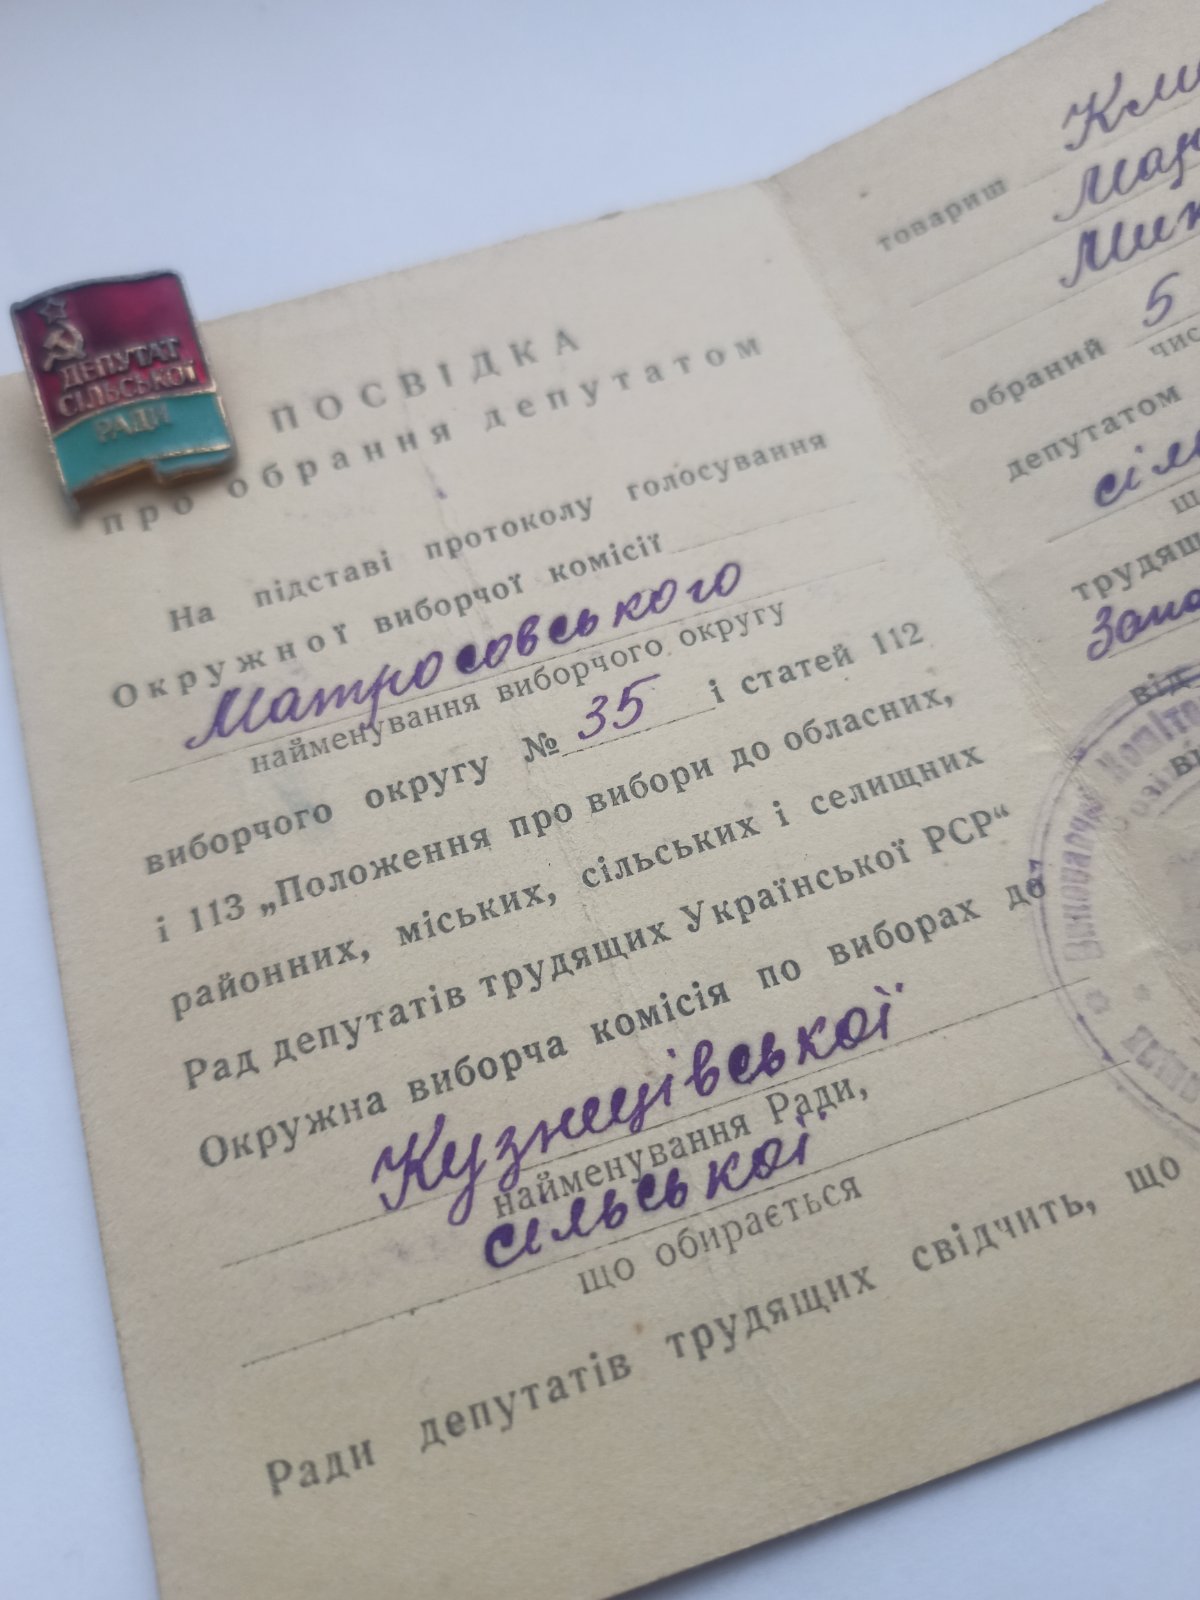 ДЕПУТАТ
СІЛЬСЬКОЇ
РАДИ
ПОСВІДКА
про обрання депутатом
На підставі протоколу голосування
Окружної виборчої комісії
Матросовського
найменування виборчого округу
виборчого округу № 35 і статей 112
і 113 „Положення про вибори до обласних,
районних, міських, сільських і селищних
Рад депутатів трудящих Української РСР“
Окружна виборча комісія по виборах до
Кузнецівської
найменування Ради,
сільської
що обирається
Ради депутатів трудящих свідчить, що
товариш
обраний 5
депутатом